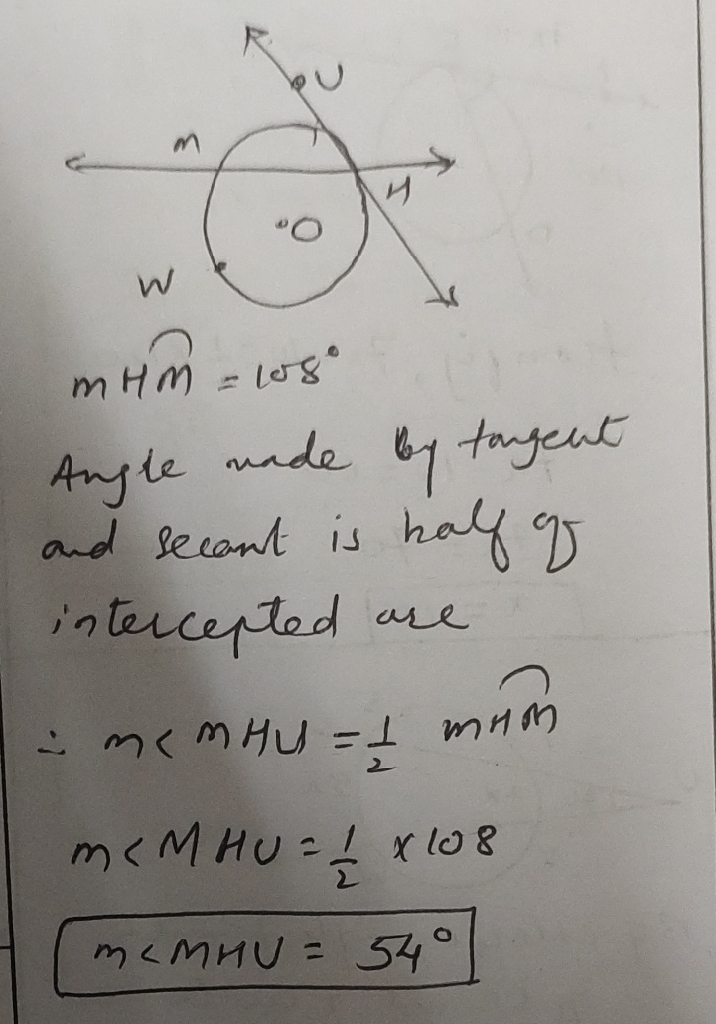 U
M
H
O
W
m HM = 108°
Angle made by tangent
and secant is half of
intercepted arc
∴ m< MHU = 1/2 m HM
m< MHU = 1/2 x 108
m< MHU = 54°